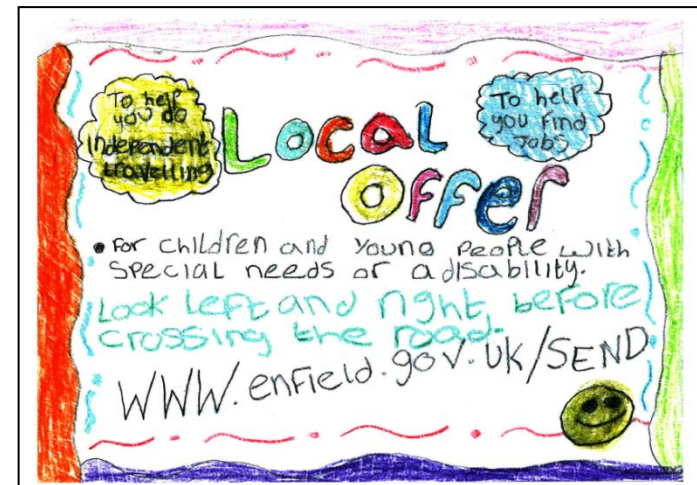 To help
you do
independent
travelling
To help
you find
Jobs
Local
Offer
• For children and young people with
special needs or a disability.
Look left and right before
crossing the road.
WWW.enfield.gov.uk/SEND